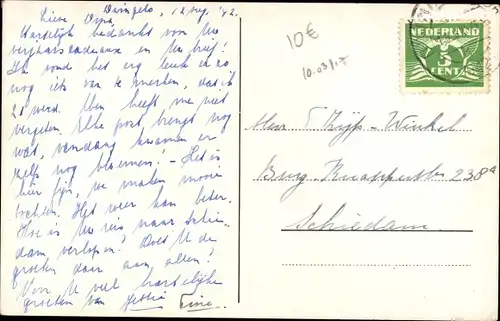 Dwingelo, 12 Aug. '42
Lieve Opa,
Hartelijk bedankt voor Uw
verjaarscadeaux en Uw brief!
Ik vond het erg leuk en zo
nog iets van te merken, dat ik
21 werd. Men heeft me niet
vergeten. Elke post brengt nog
wat, vandaag kwamen er
zelfs nog bloemen. - Het is
hier fijn, we maken mooie
tochten. Het weer kan beter.
Hoe is Uw reis naar Schie-
dam verlopen? Doet U de
groeten daar aan allen?
Voor U veel hartelijke
groeten van Tine.
10€
10.03/17
NEDERLAND
5
CENT
Zijp-Winkel
Burg. Knappertln 238a
Schiedam.